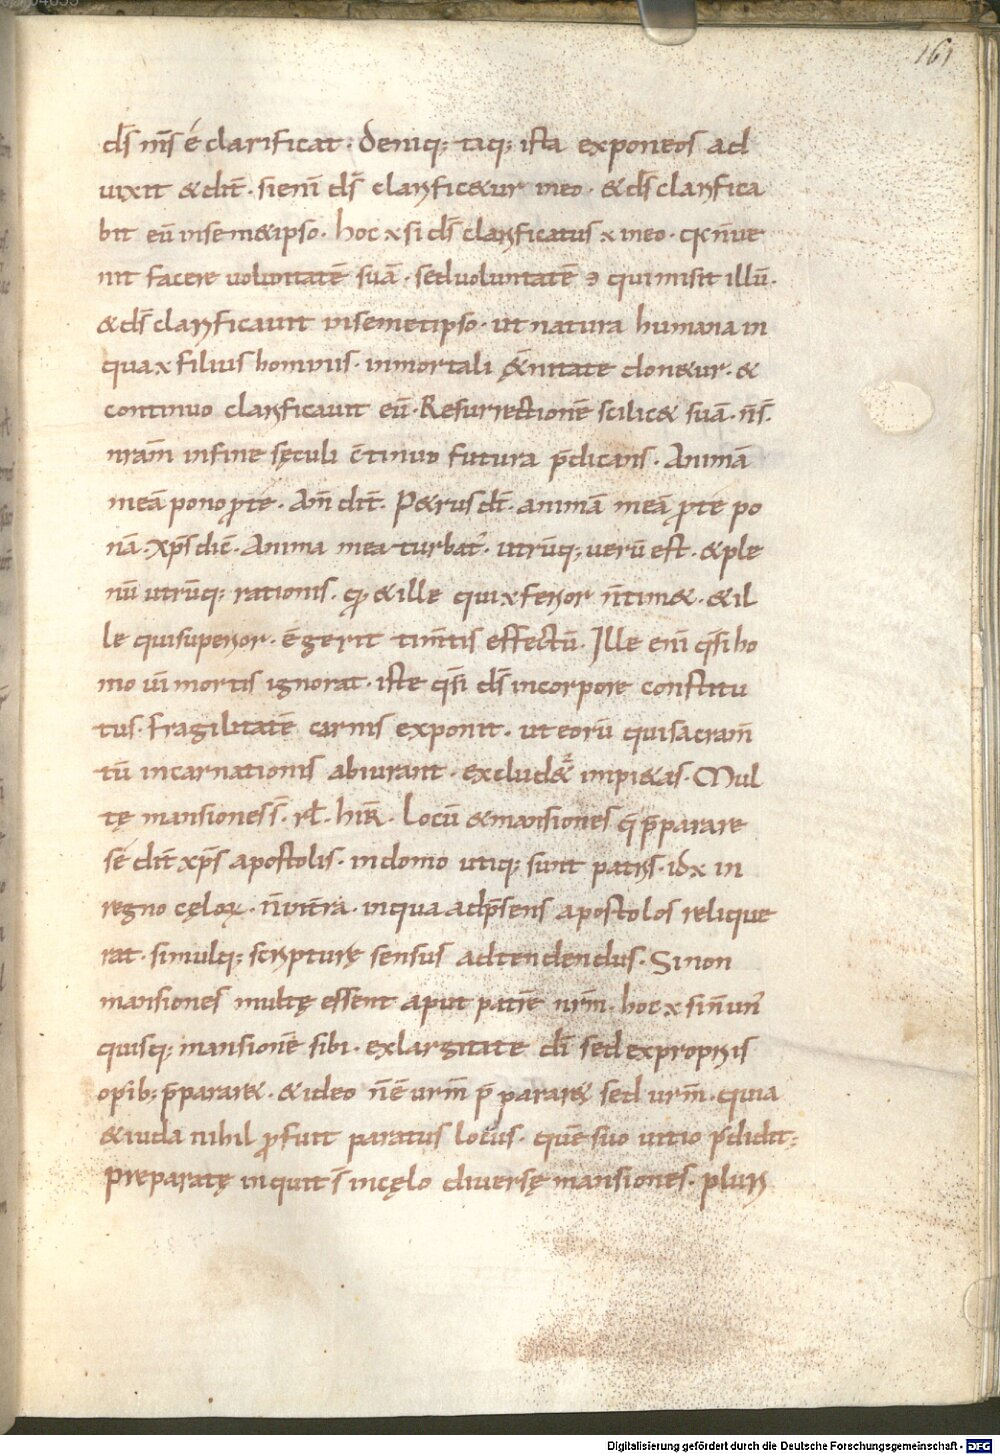 161
dꝰs nꝰs ē clarificat · Deniq; taq; ista exponeos ad
uixit & dit̄ · si eni ds̄ clarific&ur ineo · & ds̄ clarifica
bit eū insem&ipso · hoc x si ds̄ clarificatus x ineo · q n̄ ue
nit facere uoluntatē suā · sed uoluntatē ꝯ qui misit illū ·
& ds̄ clarificauit insemetipso · ut natura humana in
qua x filius hominis · inmortali &̄nitate don&ur · &
continuo clarificauit eū · Resurrectionē scilic& suā · n̄s̄ ·
nram̄ infine sęculi c̄tinuo futura p̄dicans · Animā
meā pono ꝓte · Am̄ dit̄ · P&rus dt̄ · animā meā ꝓte po
nā · xp̄s dic̄ · Anima mea turbat̄ · utrūq; uerū est · & ple
nū utrūq; rationis · qꝫ & ille qui x ferior n̄ tim& · & il
le qui superior · ē gerit timtis effectū · Ille eni q̄si ho
mo uim mortis ignorat · iste q̄si ds̄ incorpore constitu
tus · fragilitatē carnis exponit · ut eorū qui sacram̄
tū incarnationis abiurant · exclud&̄ impi&as · Mul
tę mansiones s̄ · rł · hiR̄ · Locū & mansiones q̄ p̄parare
sē dit̄ xp̄s apostolis · indomo utiq; sunt patris · id x in
regno cęloꝝ · n̄ int̄ra · inqua adp̄sens apostolos relique
rat · simulq; scripturę sensus adtendendus · Sinon
mansiones multę essent aput patrē nrm̄ · hoc x sin̄ un
quisq; mansionē sibi · exlargitate dī sed expropriis
opib; p̄parar& · & ideo n̄ ē urm̄ p̄ parar& sed urm̄ · quia
& iuda nihil ꝓfuit paratus locus · quē suo uitio p̄didit;
Preparatę inquit s̄ incęlo diuersę mansiones · pluri
Digitalisierung gefördert durch die Deutsche Forschungsgemeinschaft - DFG